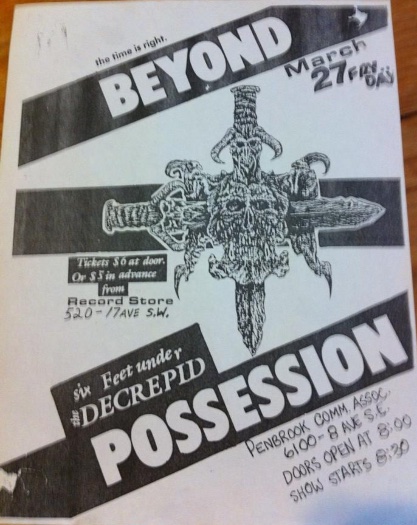 the time is right.
BEYOND
March
27 FRIDAY
Tickets $6 at door.
Or $5 in advance
from
Record Store
520-17 AVE S.W.
six Feet under
the DECREPID
POSSESSION
PENBROOK COMM. ASSOC.
6100-8 AVE S.E.
DOORS OPEN AT 8:00
SHOW STARTS 8:30